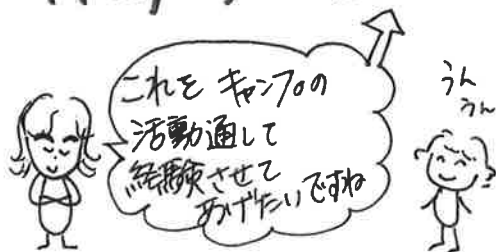 これを キャンプの
活動通して
経験させて
あげたいですね
うん
うん